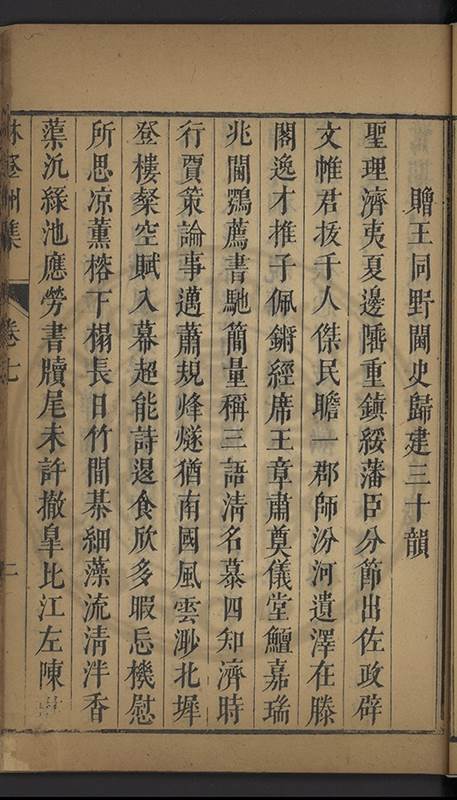 贈王同野閫史歸建三十韻
聖理濟夷夏邊陲重鎮綏藩臣分節出佐政辟
文帷君扳千人傑民瞻一郡師汾河遺澤在滕
閣逸才推子佩鏘經席王章肅奠儀堂鱣嘉瑞
兆閫鶚薦書馳簡量稱三語清名慕四知濟時
行賈策論事邁蕭規烽燧猶南國風雲渺北墀
登樓粲空賦入幕超能詩退食欣多暇忘機慰
所思凉薰榕下榻長日竹間棊細藻流清泮香
蕖沉綠池應勞書牘尾未許撤皋比江左陳
林登州集 卷七 二